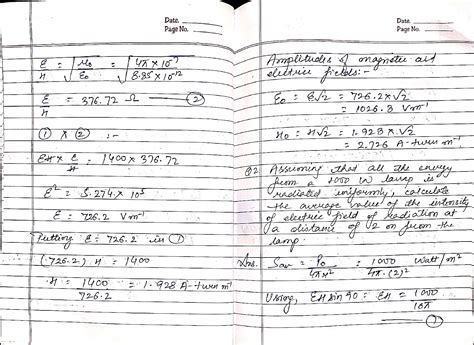 Date.
Page No.
E/H = √(μ₀/ε₀) = √(4π × 10⁻⁷ / 8.85 × 10⁻¹²)
E/H = 376.72 Ω —②
① × ② :-
EH × E/H = 1400 × 376.72
E² = 5.274 × 10⁵
E = 726.2 Vm⁻¹
Putting E = 726.2 in ①
(726.2) H = 1400
H = 1400/726.2 = 1.928 A-turn m⁻¹
Date.
Page No.
Amplitudes of magnetic and
electric fields:-
E₀ = E√2 = 726.2×√2
= 1026.8 Vm⁻¹
H₀ = H√2 = 1.928 × √2
= 2.726 A-turn m⁻¹
Q2 Assuming that all the energy
from a 1000 W lamp is
radiated uniformly, calculate
the average value of the intensity
of electric field of radiation at
a distance of 2 m from the
lamp.
Ans. Sav = P₀/4πr² = 1000/4π.(2)² Watt/m²
Using, EH sin 90 = EH = 1000/16π